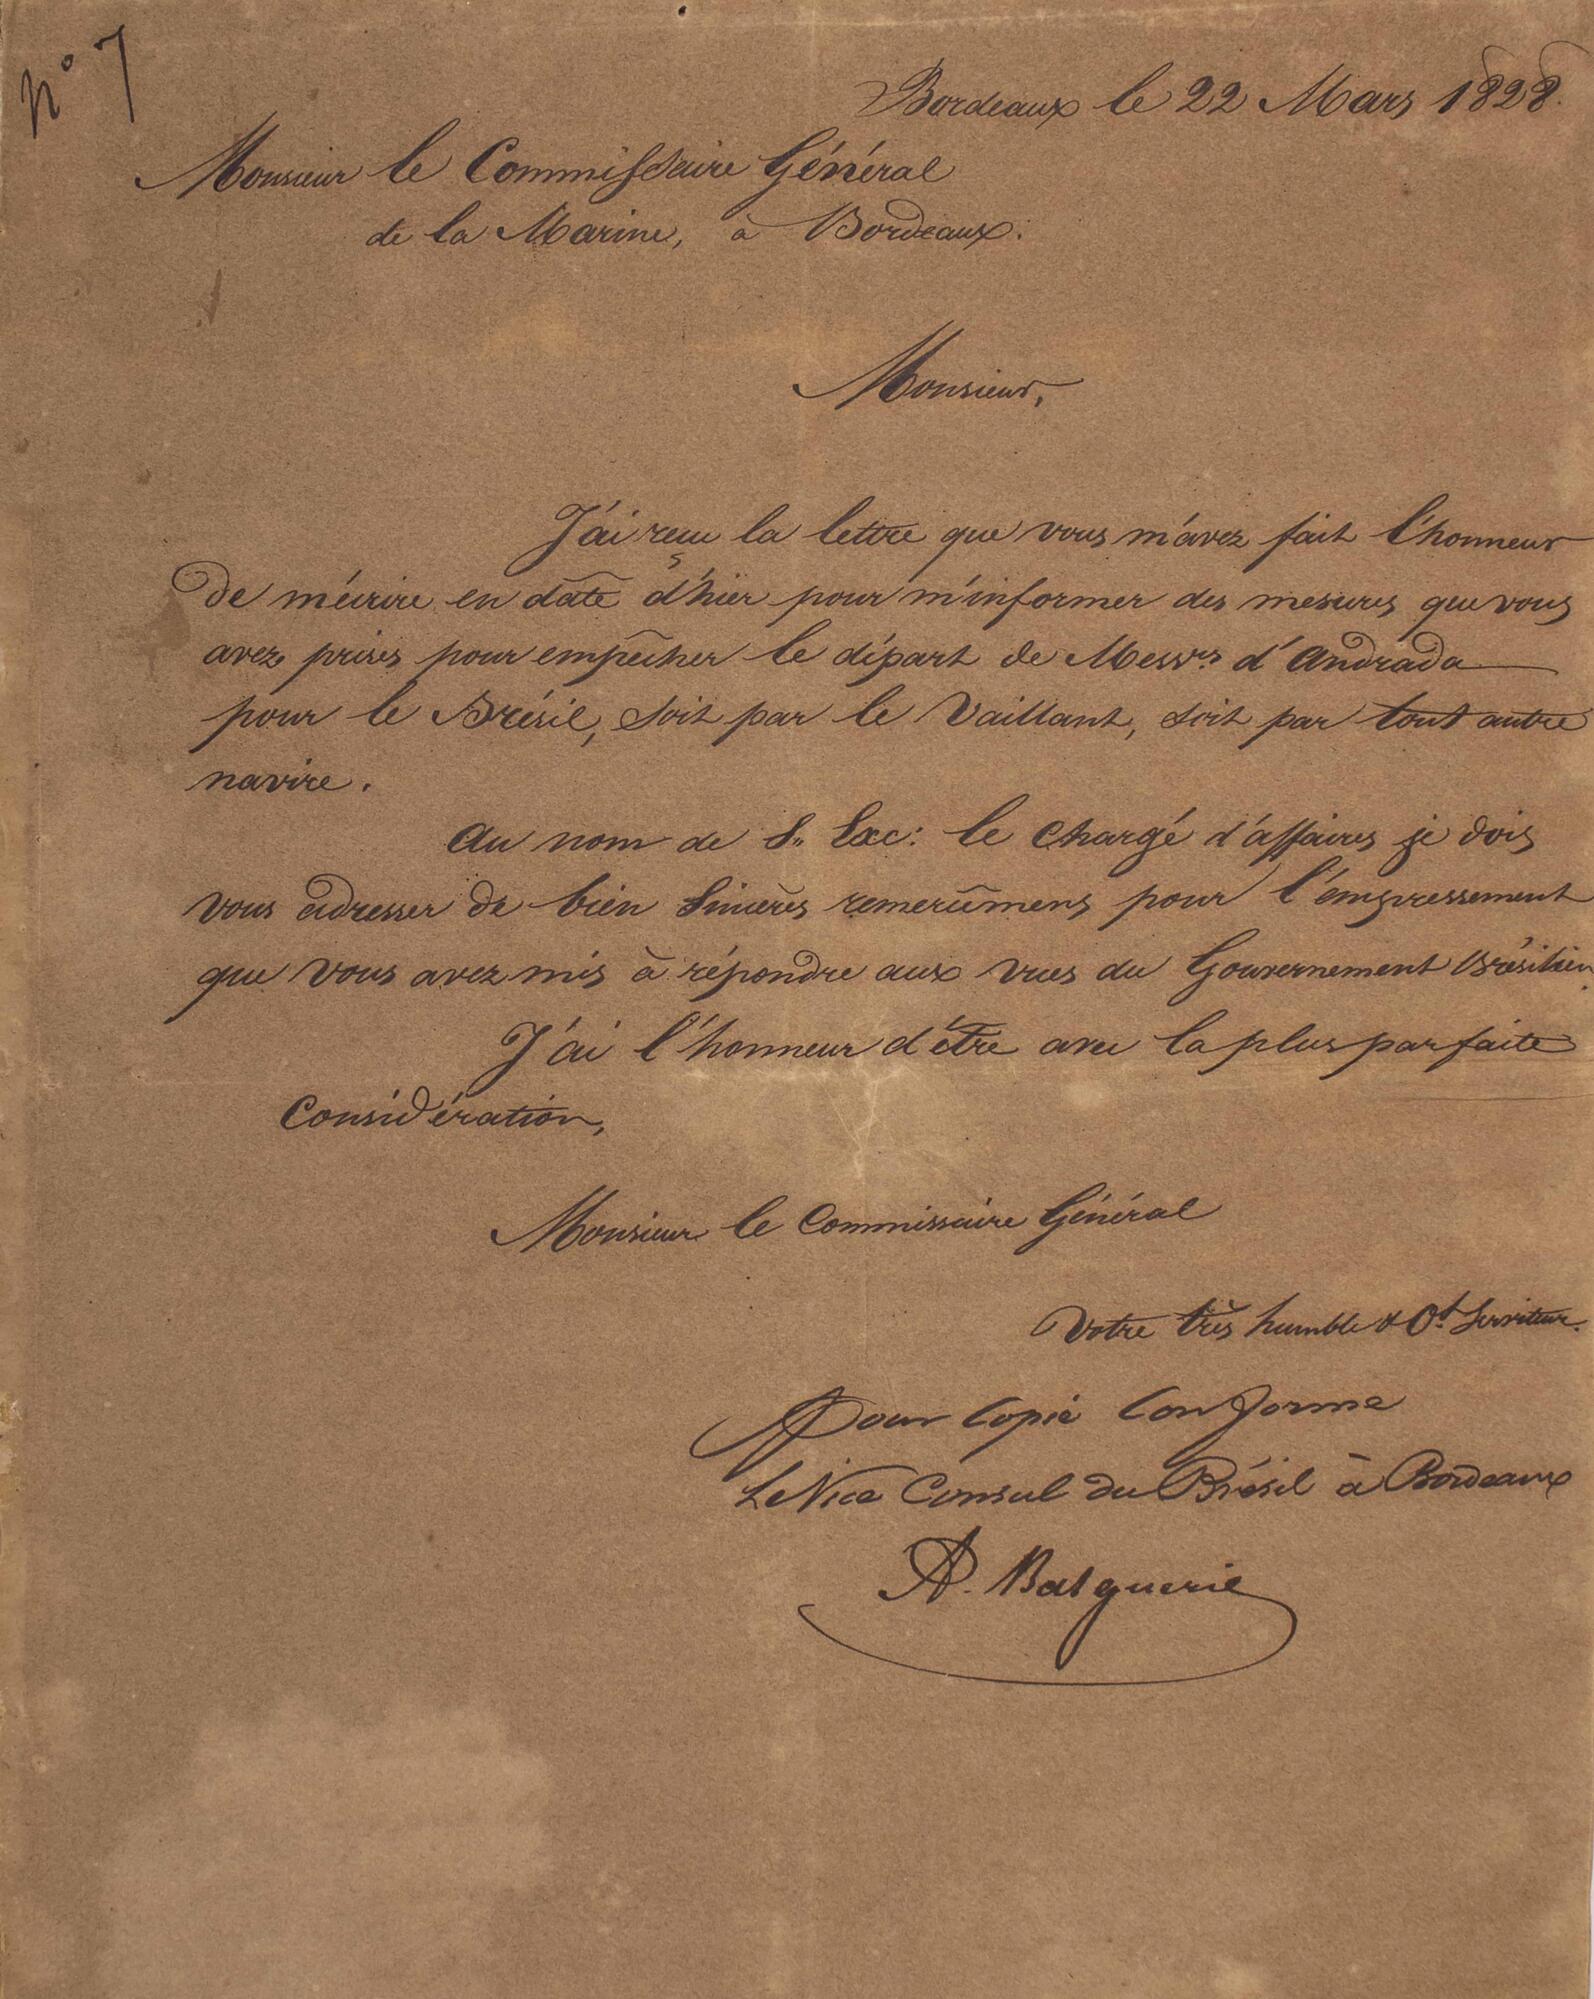 N° 7
Bordeaux le 22 Mars 1828.
Monsieur le Commissaire Général
de la Marine, à Bordeaux.
Monsieur,
J'ai reçu la lettre que vous m'avez fait l'honneur
de m'écrire en date d'hier pour m'informer des mesures que vous
avez prises pour empêcher le départ de Messrs. d'Andrada
pour le Brésil, soit par le Vaillant, soit par tout autre
navire.
Au nom de S. Exc: le chargé d'affaires je dois
vous adresser de bien sincères remercîmens pour l'empressement
que vous avez mis à répondre aux vues du Gouvernement Brésilien.
J'ai l'honneur d'être avec la plus parfaite
Considération,
Monsieur le Commissaire Général
Votre très humble & Ot. Serviteur.
Pour Copie Conforme
Le Vice Consul du Brésil à Bordeaux
A. Balguerie